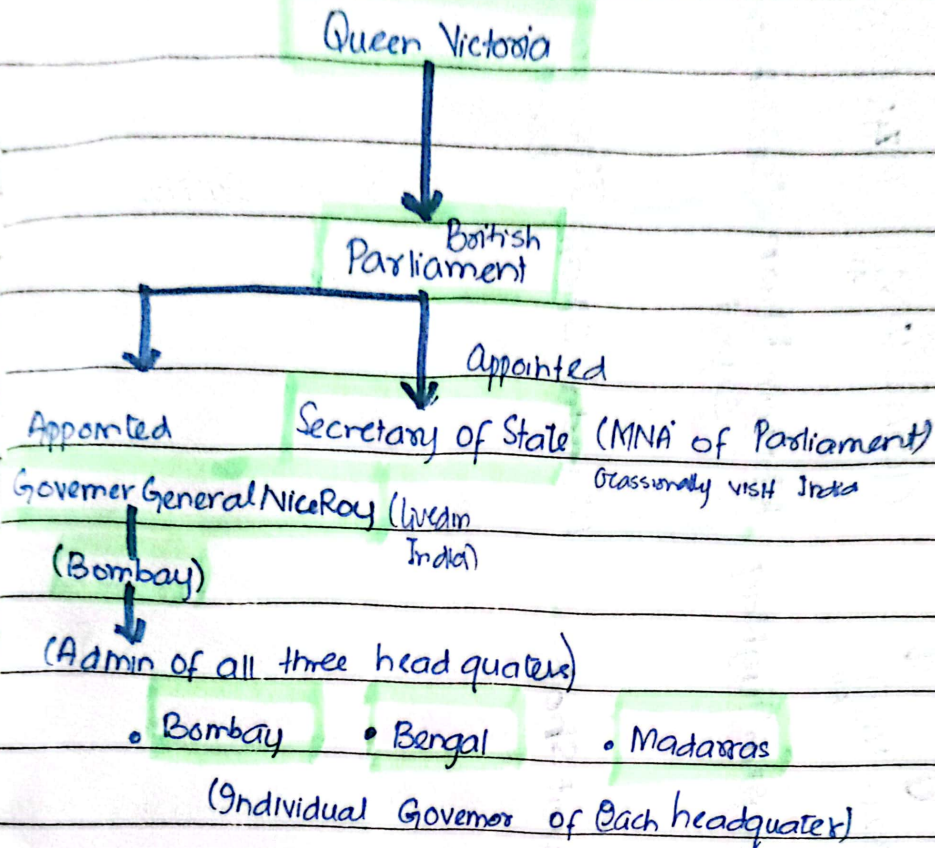 Queen Victoria
British
Parliament
appointed
Appointed
Secretary of State (MNA of Parliament)
Ocassionally visit India
Governer General/ViceRoy (lived in
India)
(Bombay)
(Admin of all three head quaters)
• Bombay • Bengal • Madarras
(Individual Governor of each headquater)